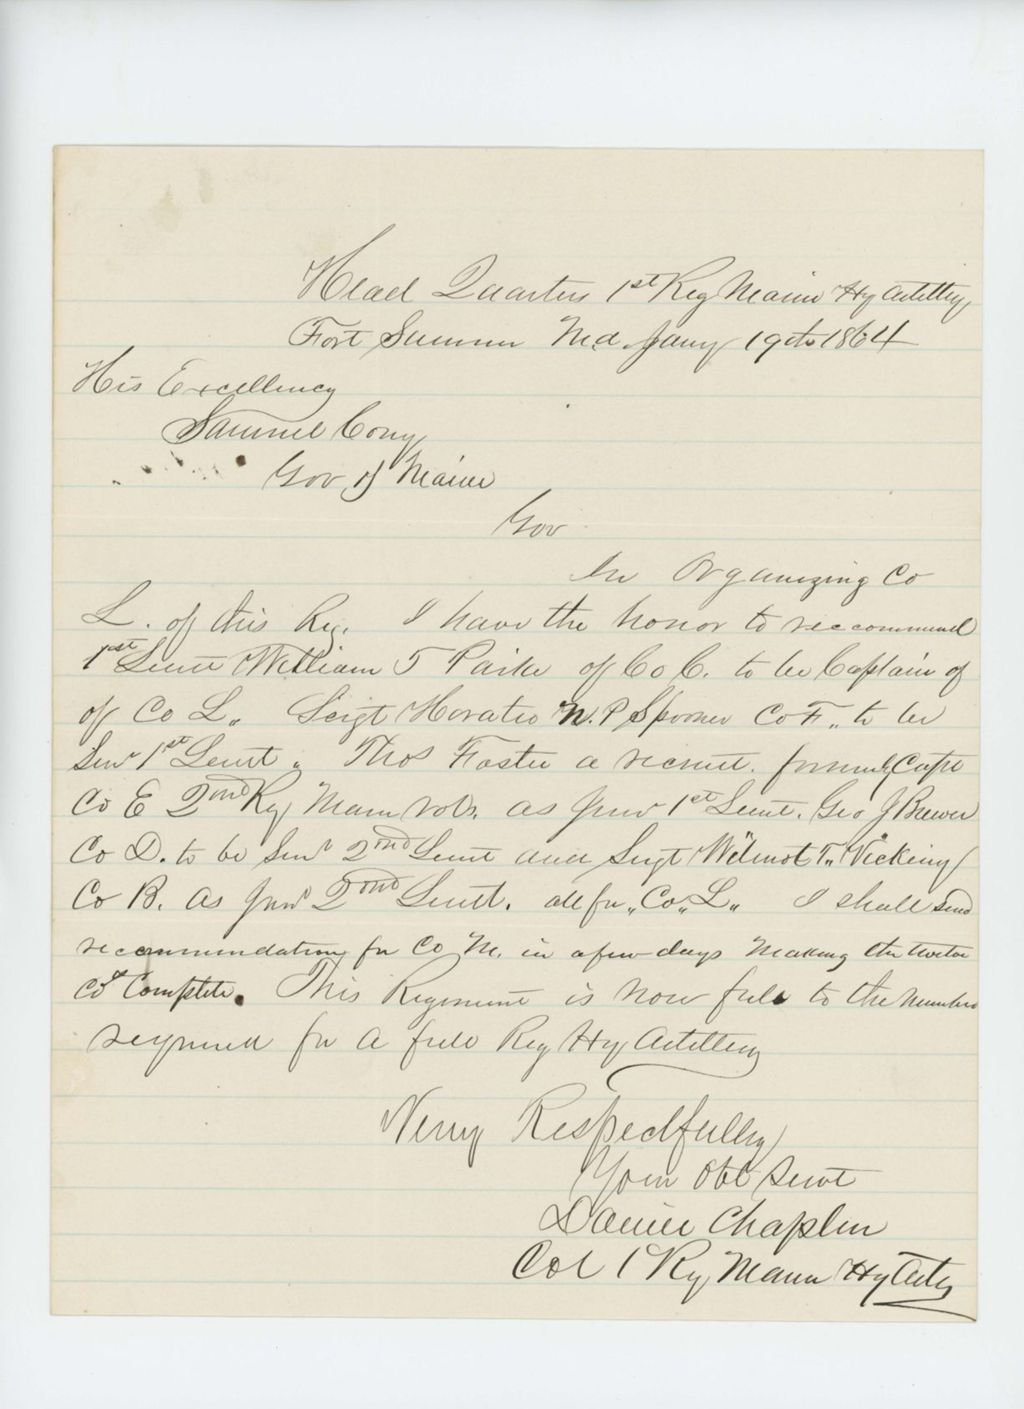 Head Quarters 1st Reg Maine Hy Artillery
Fort Sumner Md Jany 19th 1864
His Excellency
Samuel Cony
Gov of Maine
Gov
In Organizing Co
L. of this Reg. I have the honor to reccommend
1st Lieut William T Parker of Co C. to be Captain of
of Co L. Sergt Horatio N. P Spooner Co F. to be
Senr 1st Lieut. Thos Foster a recruit. formerly Capt
Co E 2nd Reg Maine Vols. as Junr 1st Lieut. Geo J Brewer
Co D. to be Senr 2nd Lieut and Sergt Wilmot T. Vickery
Co B. as Junr 2nd Lieut. all for "Co. L" I shall send
reccommendations for Co M. in a few days making the twelve
Cos Complete. This Regiment is now full to the number
required for a full Reg Hy Artillery
Very Respectfully
Your Obt Servt
Daniel Chaplin
Col 1 Reg Maine Hy Arty